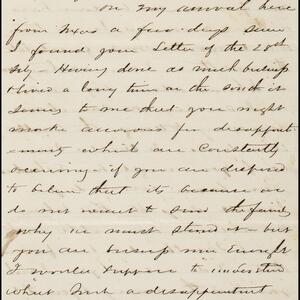 on my arrival here
from Texas a few days since
I found your Letter of the 20th
July - Having done as much business
& lived a long time in the south it
seems to me that you might
make allowances for disappoint
-ments which are constantly
occurring if you are disposed
to believe that its because we
do not want to send the funds
why we must stand it - but
you are business man Enough
I would suppose to understand
what such a disappointment